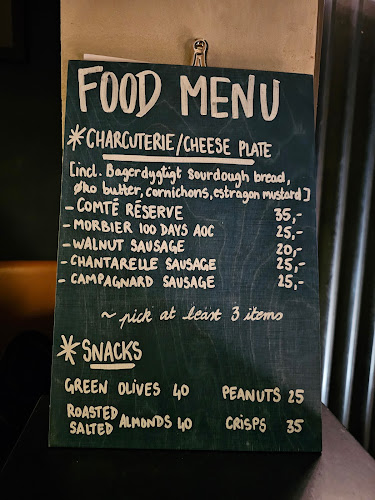 FOOD MENU
*CHARCUTERIE/CHEESE PLATE
[incl. Bagerdygtigt sourdough bread,
øko butter, cornichons, estragon mustard]
- COMTÉ RÉSERVE 35,-
- MORBIER 100 DAYS AOC 25,-
- WALNUT SAUSAGE 20,-
- CHANTARELLE SAUSAGE 25,-
- CAMPAGNARD SAUSAGE 25,-
~ pick at least 3 items
*SNACKS
GREEN OLIVES 40 PEANUTS 25
ROASTED SALTED ALMONDS 40 CRISPS 35